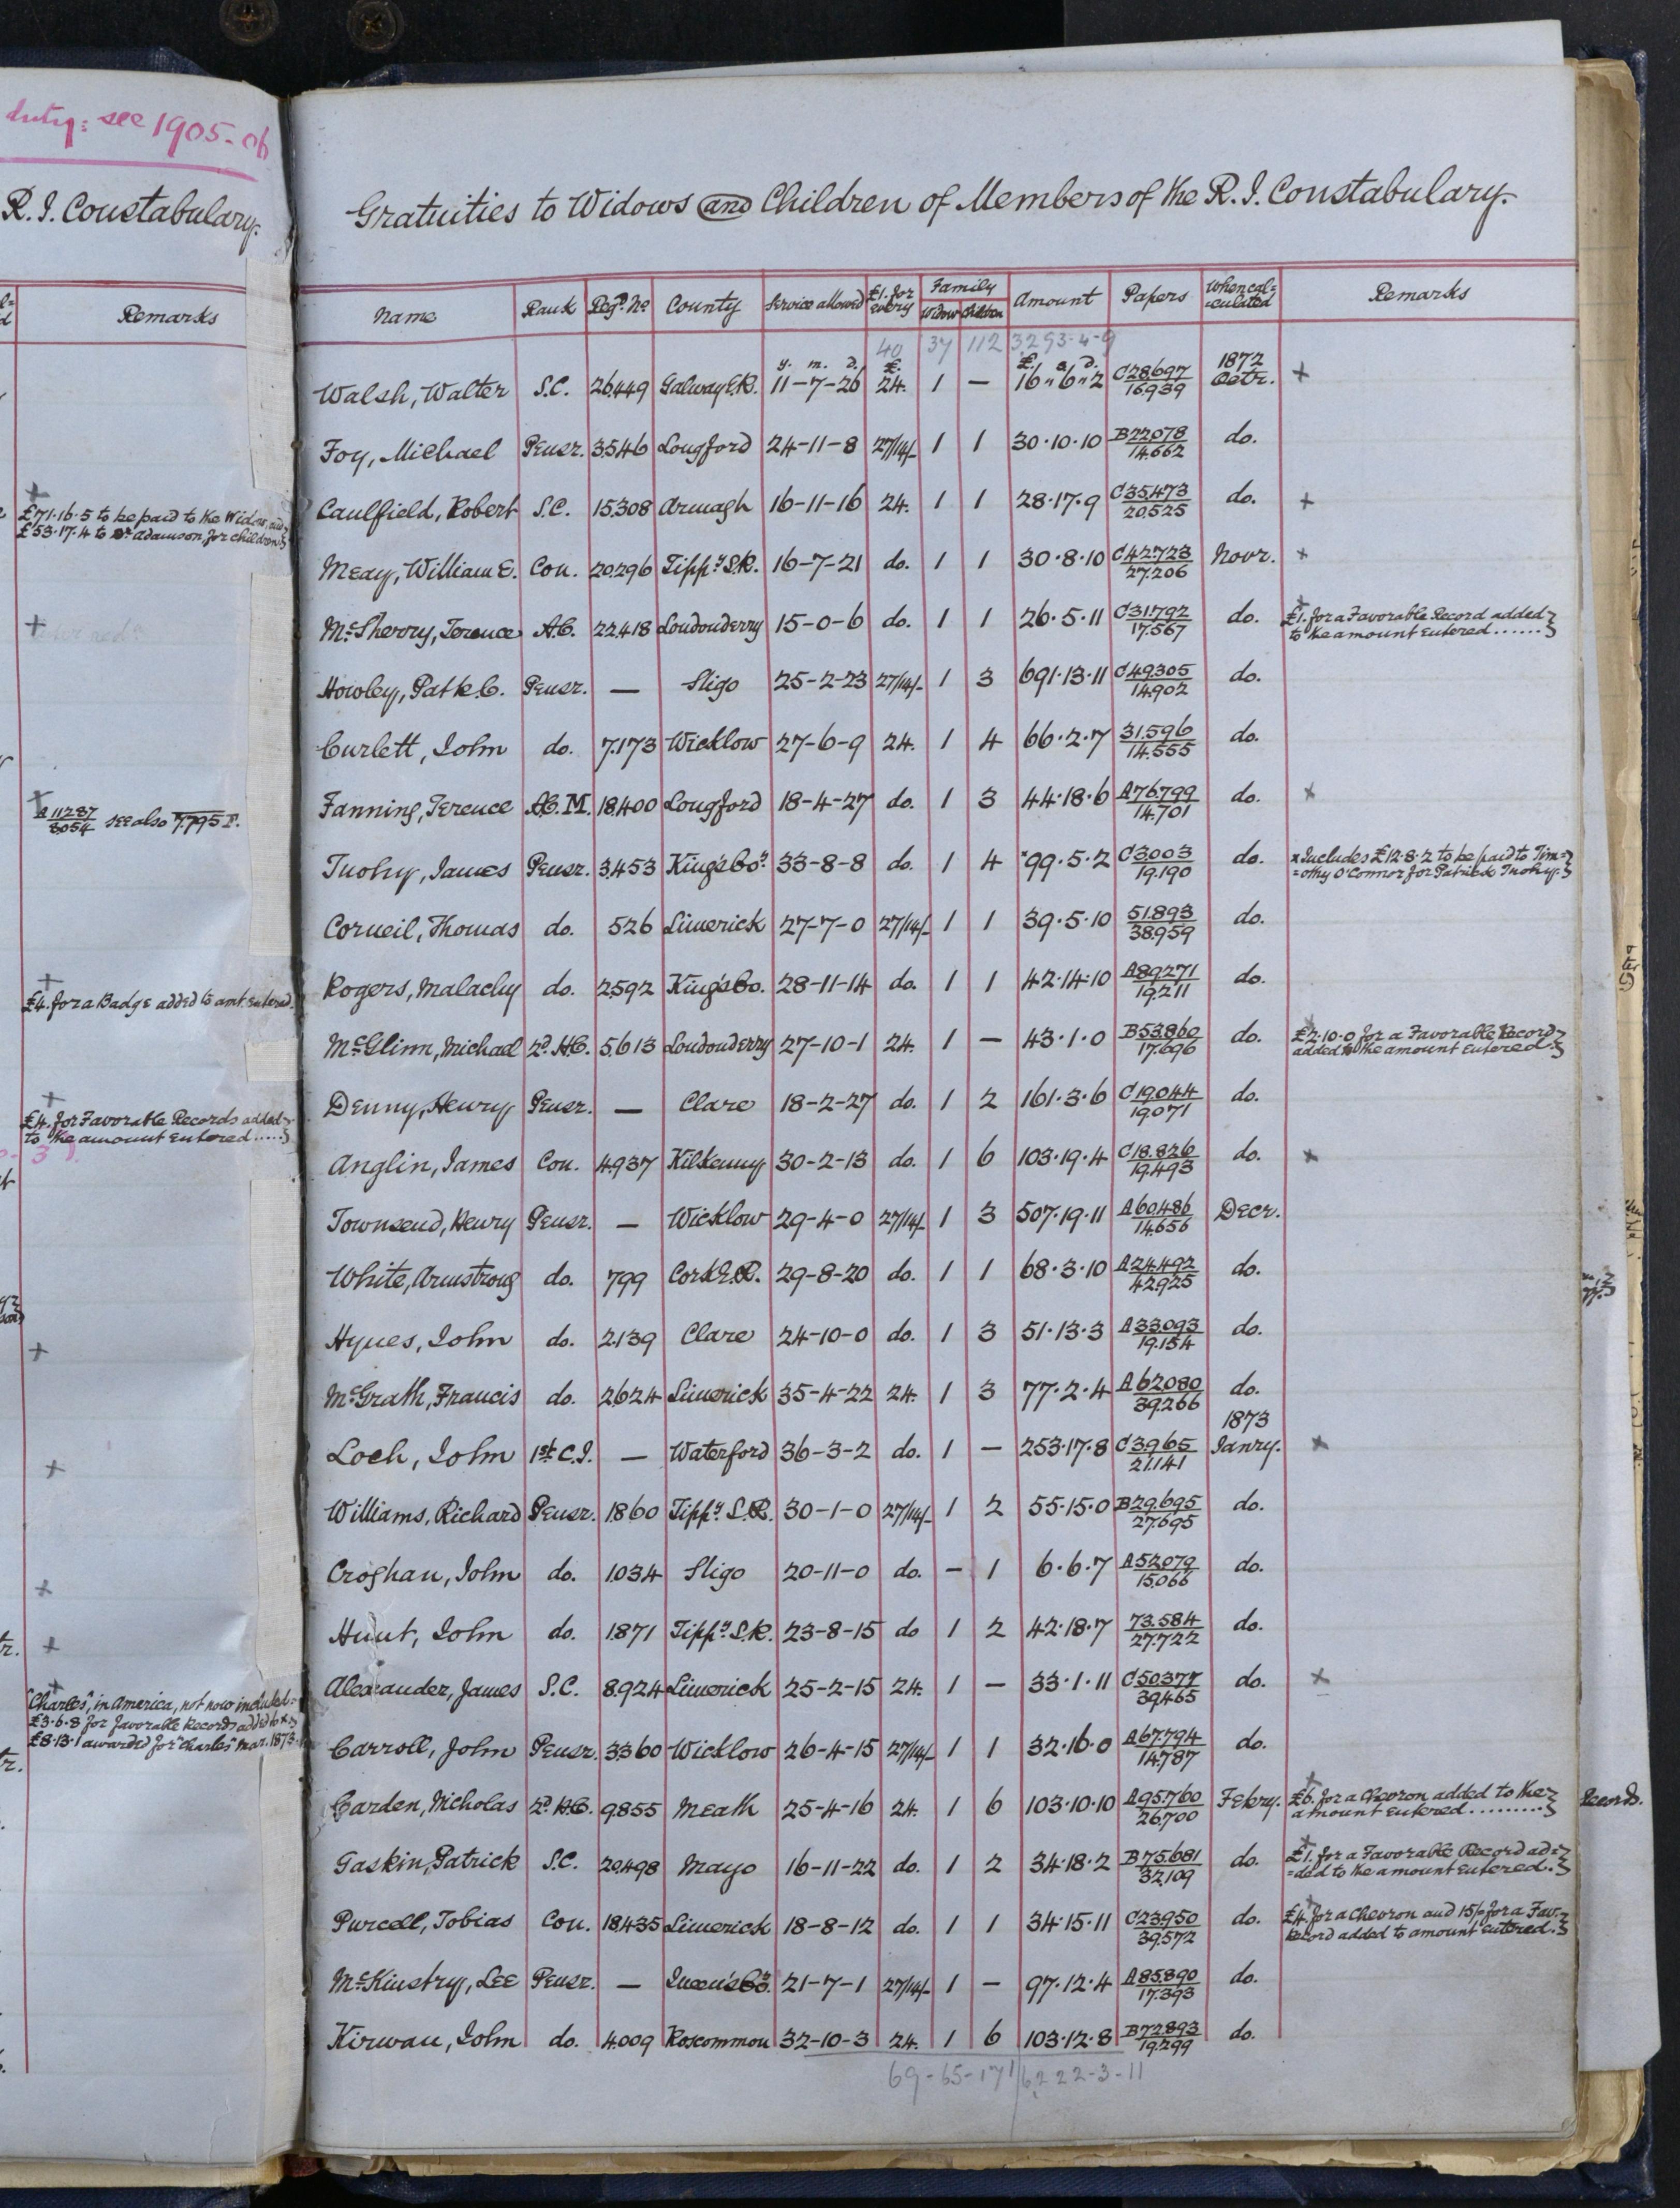 duty: see 1905-06
R. I. Constabulary.
Remarks
£71·16·5 to be paid to the Widow, and
£53·17·4 to Dr Adamson, for children
A 11287
8054 see also 7.795 P.
£4. for a Badge added to amt. entered.
£4. for Favorable Records added
to the amount entered .....
"Charles", in America, not now included
£3·6·8 for favorable Records added to
£8·13·1 awarded for "Charles" Mar. 1873.
Gratuities to Widows and Children of Members of the R. I. Constabulary.
Name Rank Regd. No. County Service allowed £1. for every Family Widow Children Amount Papers When cal=culated Remarks
40 37 112 3,293-4-9
y. m. d. £. £. s. d. 1872
Walsh, Walter S.C. 26449 Galway E.R. 11-7-26 24. 1 — 16"6"2 C28697/16939 Octr. +
Foy, Michael Pensr. 3546 Longford 24-11-8 27/14/- 1 1 30·10·10 B22078/14.662 do.
Caulfield, Robert S.C. 15308 Armagh 16-11-16 24. 1 1 28·17·9 C35473/20525 do. +
Meay, William E. Con. 20296 Tippy. S.R. 16-7-21 do. 1 1 30·8·10 C42723/27206 Novr. +
McSherry, Terence A.C. 22418 Londonderry 15-0-6 do. 1 1 26·5·11 C31792/17567 do. £1. for a Favorable Record added
to the amount entered ......
Howley, Patk. C. Pensr. — Sligo 25-2-23 27/14/- 1 3 691·13·11 C49305/14902 do.
Curlett, John do. 7173 Wicklow 27-6-9 24. 1 4 66·2·7 31.596/14.555 do.
Fanning, Terence A.C. M. 18400 Longford 18-4-27 do. 1 3 44·18·6 A76799/14.701 do. +
Tuohy, James Pensr. 3453 King's Coy. 33-8-8 do. 1 4 ×99·5·2 C3003/19.190 do. × Includes £12·8·2 to be paid to Tim=
=othy O'Connor for Patrick Tuohy.
Corneil, Thomas do. 526 Limerick 27-7-0 27/14/- 1 1 39·5·10 51.893/38959 do.
Rogers, Malachy do. 2592 King's Co. 28-11-14 do. 1 1 42·14·10 A89271/19.211 do.
McGlinn, Michael 2d. H.C. 5613 Londonderry 27-10-1 24. 1 — 43·1·0 B53860/17.696 do. £2·10·0 for a Favorable Record
added to the amount entered.
Denny, Henry Pensr. — Clare 18-2-27 do. 1 2 161·3·6 C19044/19071 do.
Anglin, James Con. 4937 Kilkenny 30-2-13 do. 1 6 103·19·4 C18.826/19.493 do. +
Townsend, Henry Pensr. — Wicklow 29-4-0 27/14/- 1 3 507·19·11 A60486/14.656 Decr.
White, Armstrong do. 799 Cork E.R. 29-8-20 do. 1 1 68·3·10 A24492/42925 do.
Hynes, John do. 2139 Clare 24-10-0 do. 1 3 51·13·3 A33093/19.154 do.
McGrath, Francis do. 2624 Limerick 35-4-22 24. 1 3 77·2·4 A62080/39266 do.
1873
Loch, John 1st C.I. — Waterford 36-3-2 do. 1 — 253·17·8 C3965/21.141 Janry. +
Williams, Richard Pensr. 1860 Tippy. S.R. 30-1-0 27/14/- 1 2 55·15·0 B29695/27695 do.
Croghan, John do. 1034 Sligo 20-11-0 do. — 1 6·6·7 A52079/15066 do.
Hunt, John do. 1871 Tippy. S.R. 23-8-15 do 1 2 42·18·7 73.584/27.722 do.
Alexander, James S.C. 8924 Limerick 25-2-15 24. 1 — 33·1·11 C50377/39465 do. +
Carroll, John Pensr. 3360 Wicklow 26-4-15 27/14/- 1 1 32·16·0 A67794/14787 do.
Carden, Nicholas 2d. H.C. 9855 Meath 25-4-16 24. 1 6 103·10·10 A95760/26700 Febry. £6. for a Chevron added to the
amount entered ..........
Gaskin, Patrick S.C. 20498 Mayo 16-11-22 do. 1 2 34·18·2 B75.681/32109 do. £1. for a Favorable Record ad=
=ded to the amount entered.
Purcell, Tobias Con. 18435 Limerick 18-8-12 do. 1 1 34·15·11 C23950/39.572 do. £4. for a Chevron and 15/- for a Fav.
Record added to amount entered.
McKinstry, Lee Pensr. — Queen's Co. 21-7-1 27/14/- 1 — 97·12·4 A85890/17.393 do.
Kirwan, John do. 4009 Roscommon 32-10-3 24. 1 6 103·12·8 B72893/19299 do.
69-65-171 6222-3-11
Records.